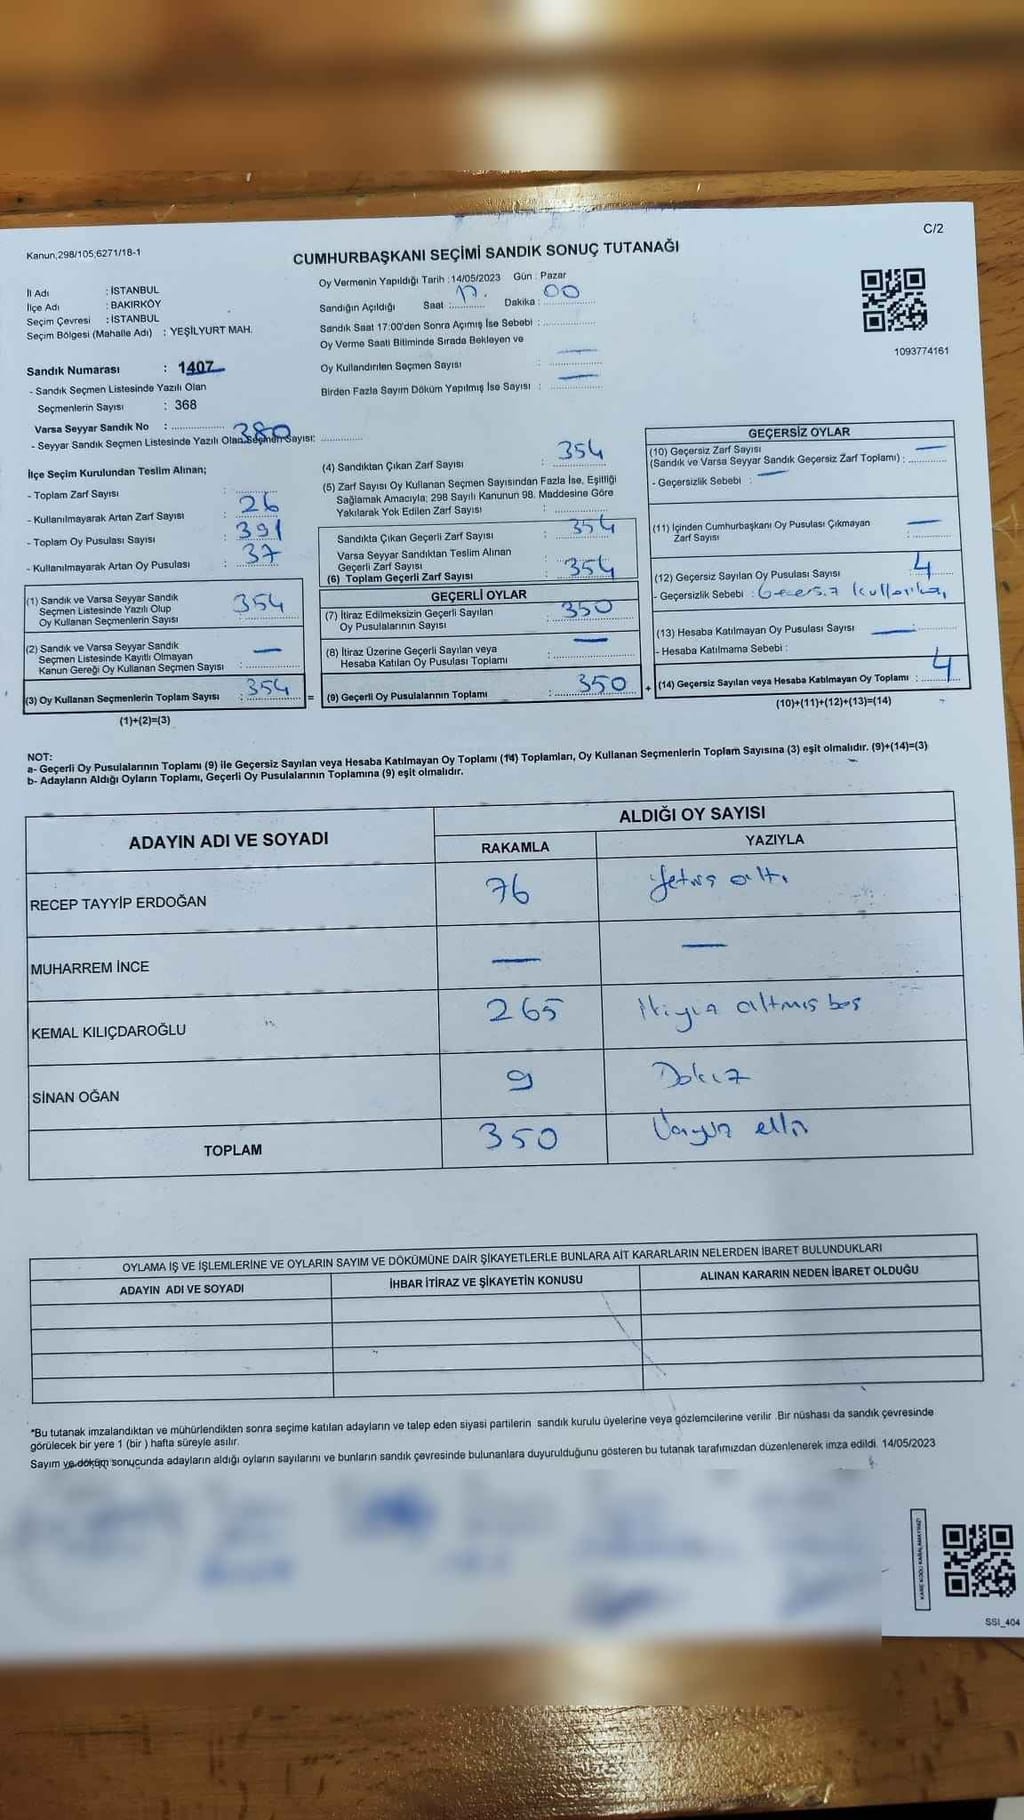 Kanun,298/105;6271/18-1
C/2
CUMHURBAŞKANI SEÇİMİ SANDIK SONUÇ TUTANAĞI
İl Adı : İSTANBUL
İlçe Adı : BAKIRKÖY
Seçim Çevresi : İSTANBUL
Seçim Bölgesi (Mahalle Adı) : YEŞİLYURT MAH.
Sandık Numarası : 1407
- Sandık Seçmen Listesinde Yazılı Olan
Seçmenlerin Sayısı : 368
Varsa Seyyar Sandık No :
- Seyyar Sandık Seçmen Listesinde Yazılı Olan Seçmen Sayısı:
380
Oy Vermenin Yapıldığı Tarih : 14/05/2023 Gün : Pazar
Sandığın Açıldığı Saat : 17. Dakika : 00
Sandık Saat 17:00'den Sonra Açımış İse Sebebi :
Oy Verme Saati Bitiminde Sırada Bekleyen ve
Oy Kullandırılen Seçmen Sayısı : —
Birden Fazla Sayım Döküm Yapılmış İse Sayısı : —
1093774161
İlçe Seçim Kurulundan Teslim Alınan;
- Toplam Zarf Sayısı :
- Kullanılmayarak Artan Zarf Sayısı : 26
- Toplam Oy Pusulası Sayısı : 391
- Kullanılmayarak Artan Oy Pusulası : 37
(1) Sandık ve Varsa Seyyar Sandık
Seçmen Listesinde Yazılı Olup
Oy Kullanan Seçmenlerin Sayısı : 354
(2) Sandık ve Varsa Seyyar Sandık
Seçmen Listesinde Kayıtlı Olmayan
Kanun Gereği Oy Kullanan Seçmen Sayısı : —
(3) Oy Kullanan Seçmenlerin Toplam Sayısı : 354
(1)+(2)=(3)
(4) Sandıktan Çıkan Zarf Sayısı : 354
(5) Zarf Sayısı Oy Kullanan Seçmen Sayısından Fazla İse, Eşitliği
Sağlamak Amacıyla; 298 Sayılı Kanunun 98. Maddesine Göre
Yakılarak Yok Edilen Zarf Sayısı :
Sandıkta Çıkan Geçerli Zarf Sayısı : 354
Varsa Seyyar Sandıktan Teslim Alınan
Geçerli Zarf Sayısı
(6) Toplam Geçerli Zarf Sayısı : 354
GEÇERLİ OYLAR
(7) İtiraz Edilmeksizin Geçerli Sayılan
Oy Pusulalarının Sayısı : 350
(8) İtiraz Üzerine Geçerli Sayılan veya
Hesaba Katılan Oy Pusulası Toplamı : —
= (9) Geçerli Oy Pusulalarının Toplamı : 350 +
GEÇERSİZ OYLAR
(10) Geçersiz Zarf Sayısı
(Sandık ve Varsa Seyyar Sandık Geçersiz Zarf Toplamı) : —
- Geçersizlik Sebebi : —
(11) İçinden Cumhurbaşkanı Oy Pusulası Çıkmayan
Zarf Sayısı : —
(12) Geçersiz Sayılan Oy Pusulası Sayısı : 4
- Geçersizlik Sebebi : Geçersiz
(13) Hesaba Katılmayan Oy Pusulası Sayısı : —
- Hesaba Katılmama Sebebi :
(14) Geçersiz Sayılan veya Hesaba Katılmayan Oy Toplamı : 4
(10)+(11)+(12)+(13)=(14)
NOT:
a- Geçerli Oy Pusulalarının Toplamı (9) ile Geçersiz Sayılan veya Hesaba Katılmayan Oy Toplamı (14) Toplamları, Oy Kullanan Seçmenlerin Toplam Sayısına (3) eşit olmalıdır. (9)+(14)=(3)
b- Adayların Aldığı Oyların Toplamı, Geçerli Oy Pusulalarının Toplamına (9) eşit olmalıdır.
ADAYIN ADI VE SOYADI ALDIĞI OY SAYISI
RAKAMLA YAZIYLA
RECEP TAYYİP ERDOĞAN 76 yetmiş altı
MUHARREM İNCE — —
KEMAL KILIÇDAROĞLU 265 ikiyüz altmış beş
SİNAN OĞAN 9 Dokuz
TOPLAM 350 Üçyüz elli
OYLAMA İŞ VE İŞLEMLERİNE VE OYLARIN SAYIM VE DÖKÜMÜNE DAİR ŞİKAYETLERLE BUNLARA AİT KARARLARIN NELERDEN İBARET BULUNDUKLARI
ADAYIN ADI VE SOYADI İHBAR İTİRAZ VE ŞİKAYETİN KONUSU ALINAN KARARIN NEDEN İBARET OLDUĞU
*Bu tutanak imzalandıktan ve mühürlendikten sonra seçime katılan adayların ve talep eden siyasi partilerin sandık kurulu üyelerine veya gözlemcilerine verilir .Bir nüshası da sandık çevresinde
görülecek bir yere 1 (bir ) hafta süreyle asılır.
Sayım ve döküm sonucunda adayların aldığı oyların sayılarını ve bunların sandık çevresinde bulunanlara duyurulduğunu gösteren bu tutanak tarafımızdan düzenlenerek imza edildi. 14/05/2023
KARE KODU KARALAMAYINIZ!
SSI_404